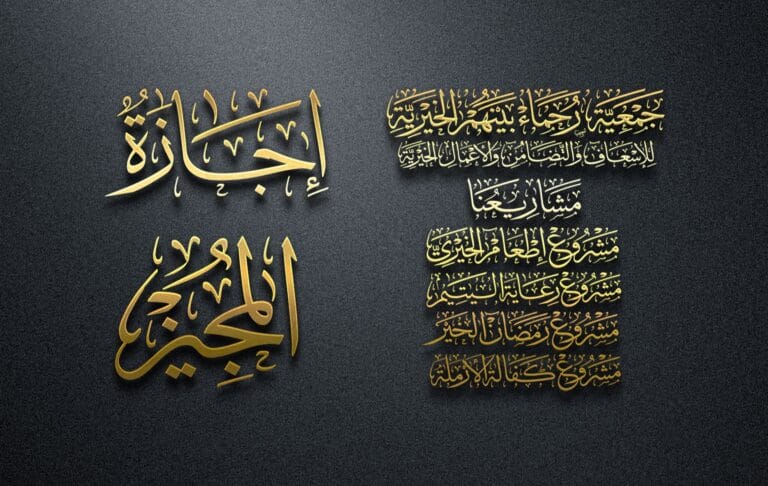 جَمْعِيَّة رُحَمَاءُ بَيْنَهُمْ الخَيْرِيَّةِ
لِلْإِسْعَافِ وَالتَّضَامُنِ وَالْأَعْمَالِ الْخَيْرِيَّةِ
مَشَارِيعُنَا
مَشْرُوعُ إِطْعَامِ الخَيْرِيِّ
مَشْرُوعُ رِعَايَةِ الْيَتِيمِ
مَشْرُوعُ رَمَضَانَ الْخَيْرِ
مَشْرُوعُ كَفَالَةِ الْأَرْمَلَةِ
إِجَازَةُ
المُجِيزْ